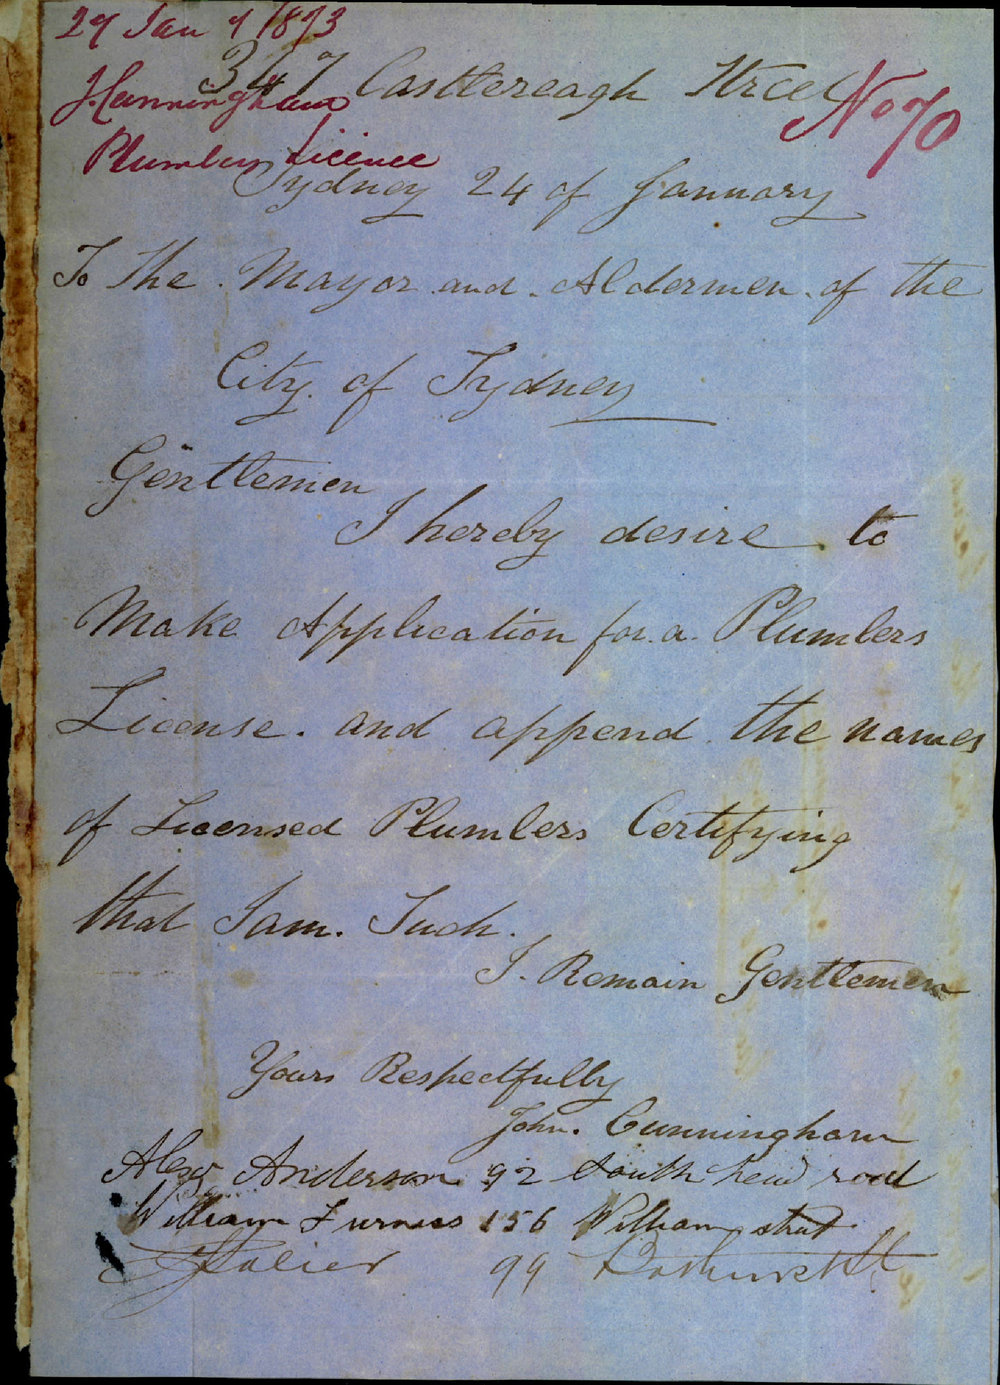 29 Jan y 1873
J. Cunningham
Plumbers Licence
No 70
347 Castlereagh Street
Sydney 24 of January
To The Mayor and Aldermen of the
City of Sydney
Gentlemen
I hereby desire to
Make Application for a Plumbers
License. and append the names
of Licensed Plumbers Certifying
that I am. Such.
I. Remain Gentlemen
Yours Respectfully
John. Cunningham
Alexr Anderson 92 South head road
William Furness 156 William street
99 Bathurst St